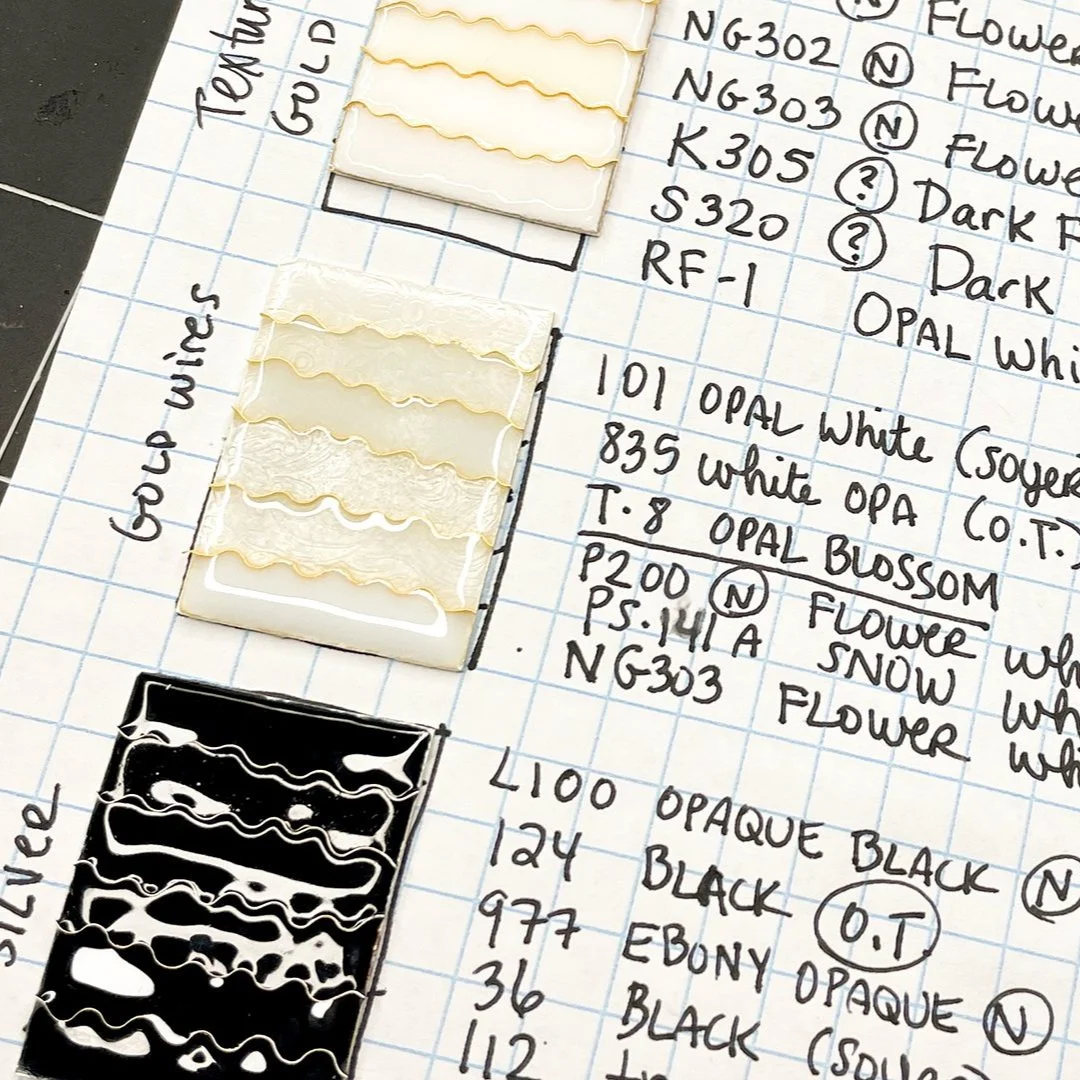 Textur
GOLD
N FLOWER
NG302 N FLOW
NG303 N FLOWE
K305 ? Dark F
S320 ? Dark
RF-1 OPAL Whi
GOLD wires
101 OPAL White (Soyer
835 white OPA (O.T.)
T.8 OPAL BLOSSOM
P200 N FLOWER Wh
PS.141A SNOW Wh
NG303 FLOWER Whi
SILVER
L100 OPAQUE BLACK N
124 BLACK O.T
977 EBONY OPAQUE N
36 BLACK (Soye
112